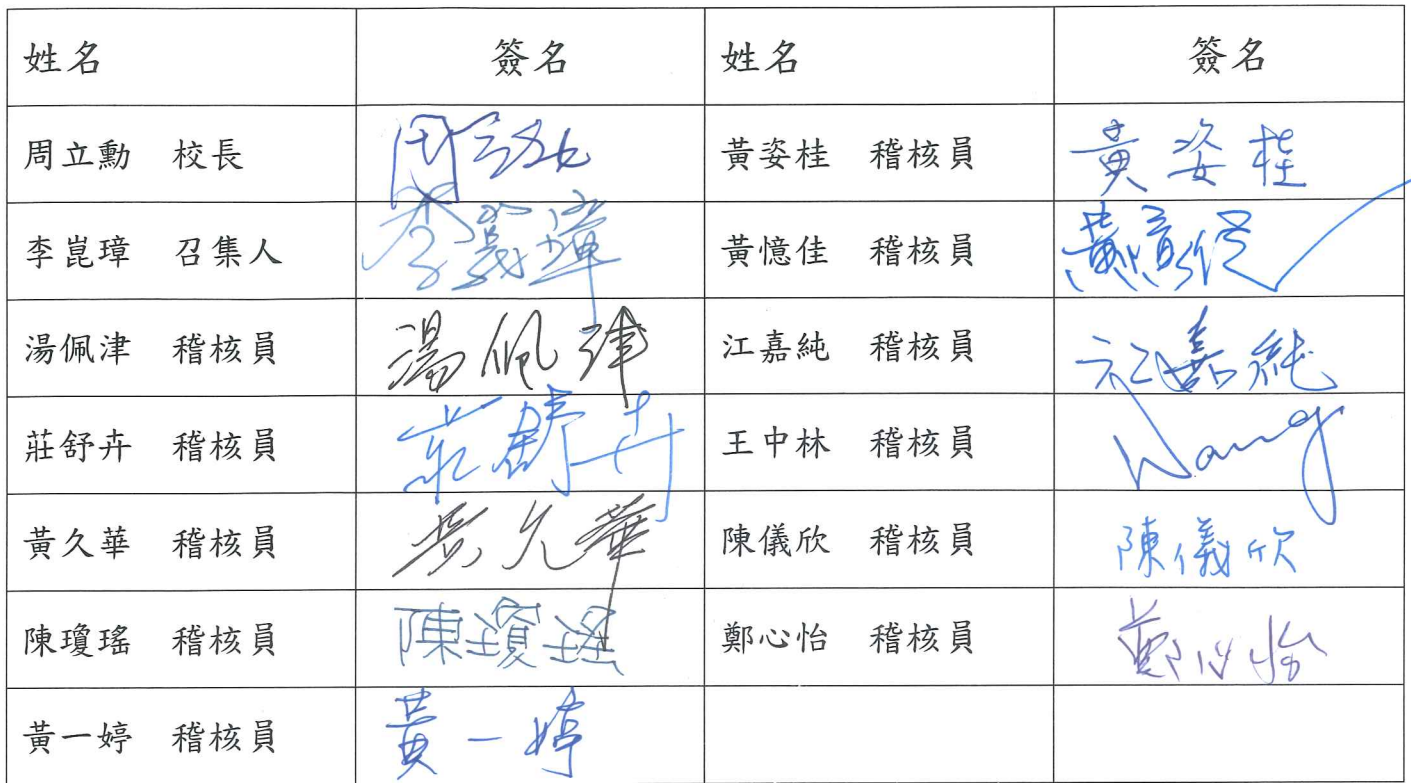 姓名 簽名 姓名 簽名
周立勳 校長 周立勳 黃姿桂 稽核員 黃姿桂
李崑璋 召集人 李崑璋 黃憶佳 稽核員 黃憶佳
湯佩津 稽核員 湯佩津 江嘉純 稽核員 江嘉純
莊舒卉 稽核員 莊舒卉 王中林 稽核員 Wang
黃久華 稽核員 黃久華 陳儀欣 稽核員 陳儀欣
陳瓊瑤 稽核員 陳瓊瑤 鄭心怡 稽核員 鄭心怡
黃一婷 稽核員 黃一婷